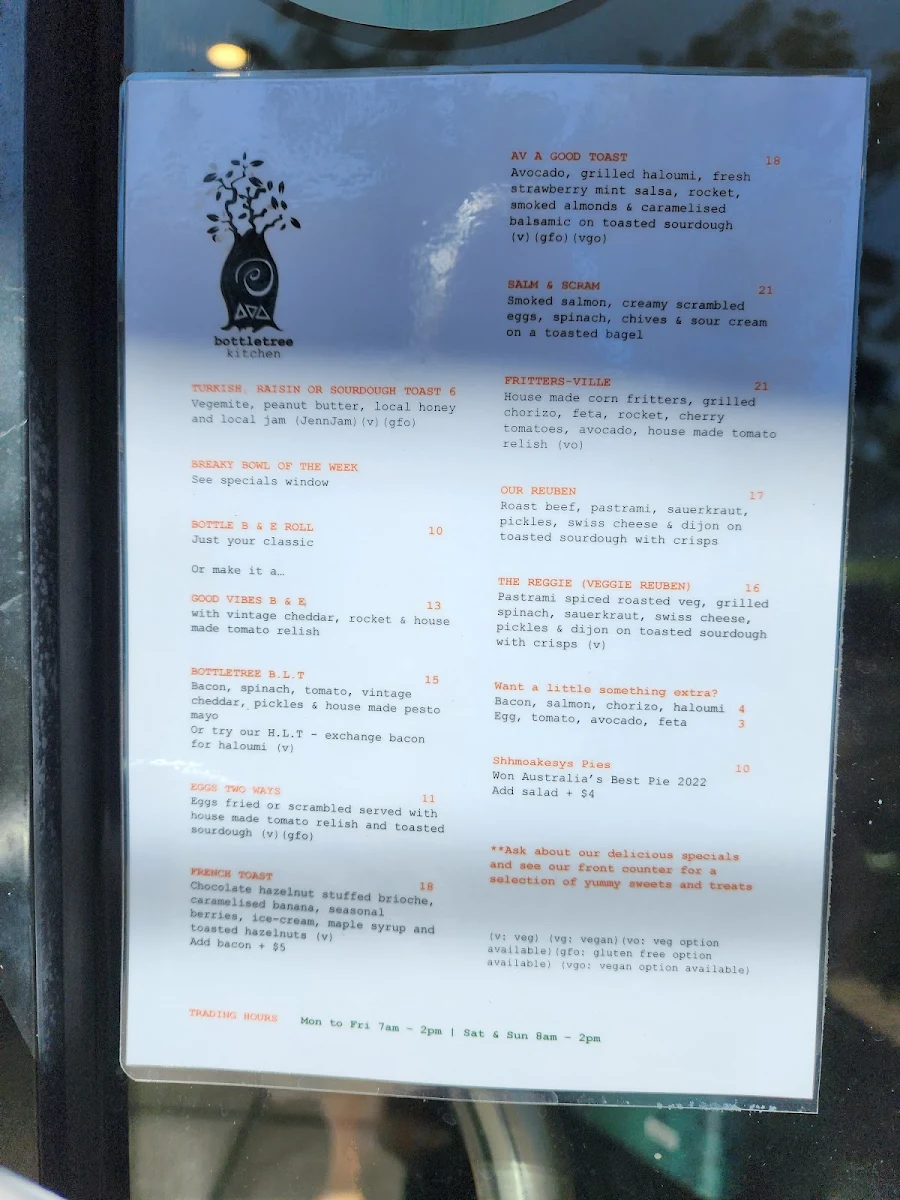 bottletree
kitchen
TURKISH, RAISIN OR SOURDOUGH TOAST 6
Vegemite, peanut butter, local honey
and local jam (JennJam)(v)(gfo)
BREAKY BOWL OF THE WEEK
See specials window
BOTTLE B & E ROLL 10
Just your classic
Or make it a…
GOOD VIBES B & E 13
with vintage cheddar, rocket & house
made tomato relish
BOTTLETREE B.L.T 15
Bacon, spinach, tomato, vintage
cheddar, pickles & house made pesto
mayo
Or try our H.L.T - exchange bacon
for haloumi (v)
EGGS TWO WAYS 11
Eggs fried or scrambled served with
house made tomato relish and toasted
sourdough (v)(gfo)
FRENCH TOAST 18
Chocolate hazelnut stuffed brioche,
caramelised banana, seasonal
berries, ice-cream, maple syrup and
toasted hazelnuts (v)
Add bacon + $5
AV A GOOD TOAST 18
Avocado, grilled haloumi, fresh
strawberry mint salsa, rocket,
smoked almonds & caramelised
balsamic on toasted sourdough
(v)(gfo)(vgo)
SALM & SCRAM 21
Smoked salmon, creamy scrambled
eggs, spinach, chives & sour cream
on a toasted bagel
FRITTERS-VILLE 21
House made corn fritters, grilled
chorizo, feta, rocket, cherry
tomatoes, avocado, house made tomato
relish (vo)
OUR REUBEN 17
Roast beef, pastrami, sauerkraut,
pickles, swiss cheese & dijon on
toasted sourdough with crisps
THE REGGIE (VEGGIE REUBEN) 16
Pastrami spiced roasted veg, grilled
spinach, sauerkraut, swiss cheese,
pickles & dijon on toasted sourdough
with crisps (v)
Want a little something extra?
Bacon, salmon, chorizo, haloumi 4
Egg, tomato, avocado, feta 3
Shhmoakesys Pies 10
Won Australia's Best Pie 2022
Add salad + $4
**Ask about our delicious specials
and see our front counter for a
selection of yummy sweets and treats
(v: veg) (vg: vegan)(vo: veg option
available)(gfo: gluten free option
available) (vgo: vegan option available)
TRADING HOURS Mon to Fri 7am - 2pm | Sat & Sun 8am - 2pm